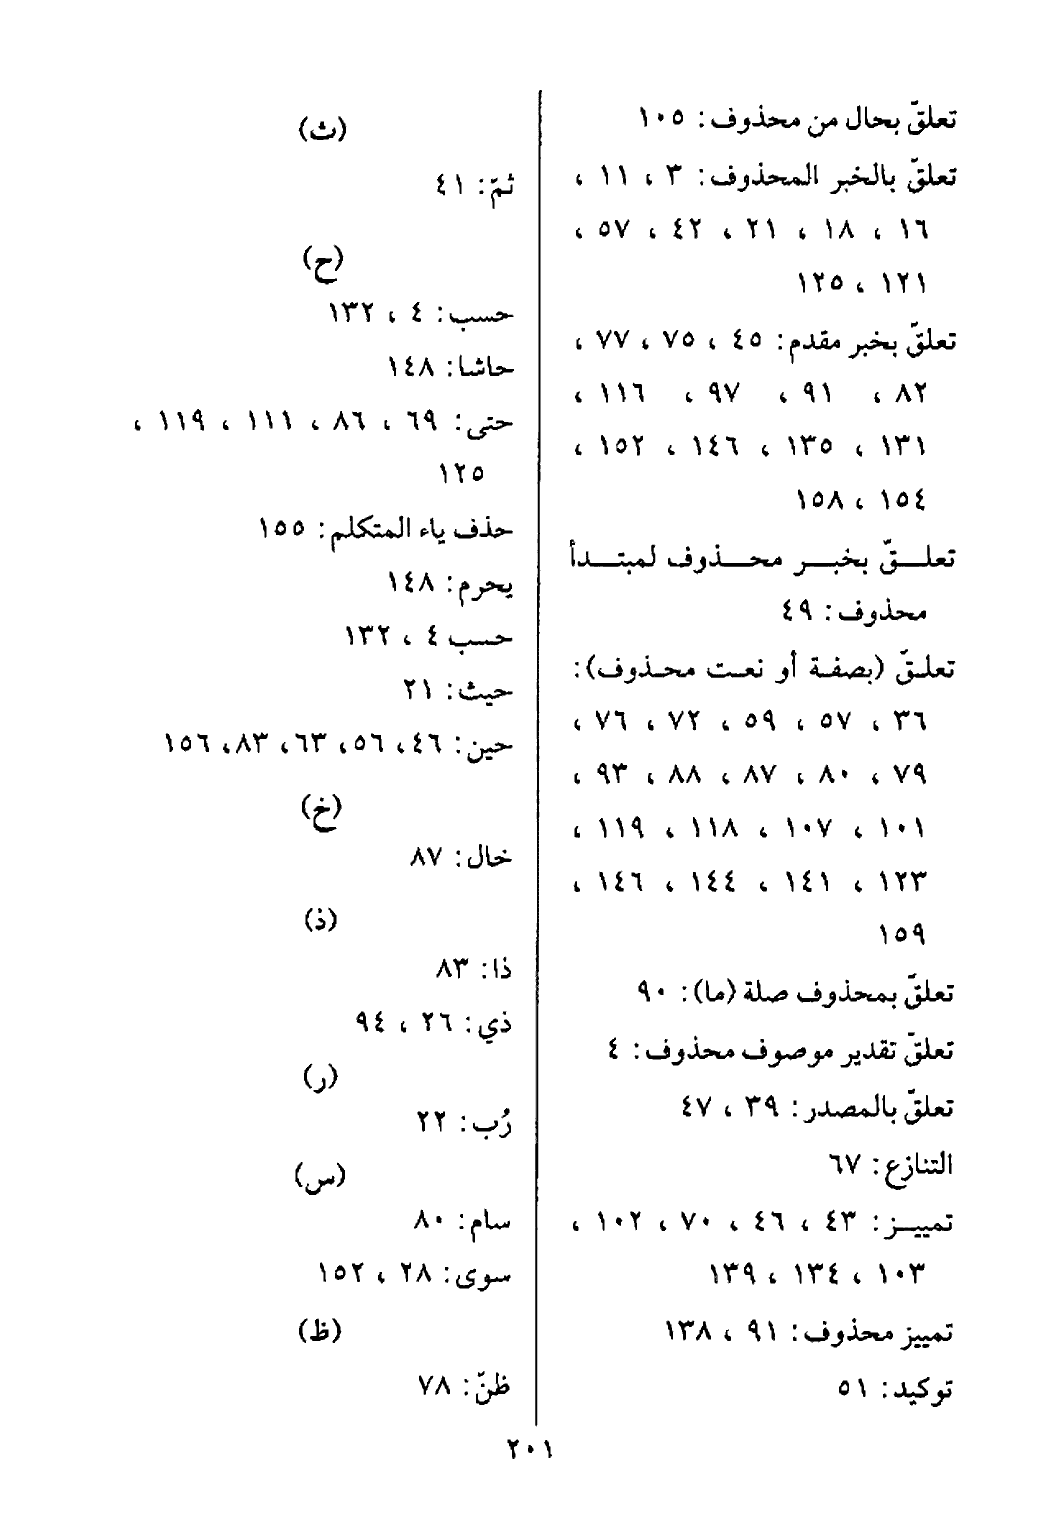 تعلقّ بحال من محذوف: ١٠٥
تعلقّ بالخبر المحذوف: ٣ ، ١١ ،
١٦ ، ١٨ ، ٢١ ، ٤٢ ، ٥٧ ،
١٢١ ، ١٢٥
تعلقّ بخبر مقدم: ٤٥ ، ٧٥ ، ٧٧ ،
٨٢ ، ٩١ ، ٩٧ ، ١١٦ ،
١٣١ ، ١٣٥ ، ١٤٦ ، ١٥٢ ،
١٥٤ ، ١٥٨
تعلـــقّ بخبـــر محـــذوف لمبتـــدأ
محذوف: ٤٩
تعلـقّ (بصفـة أو نعـت محـذوف):
٣٦ ، ٥٧ ، ٥٩ ، ٧٢ ، ٧٦ ،
٧٩ ، ٨٠ ، ٨٧ ، ٨٨ ، ٩٣ ،
١٠١ ، ١٠٧ ، ١١٨ ، ١١٩ ،
١٢٣ ، ١٤١ ، ١٤٤ ، ١٤٦ ،
١٥٩
تعلقّ بمحذوف صلة (ما): ٩٠
تعلقّ تقدير موصوف محذوف: ٤
تعلقّ بالمصدر: ٣٩ ، ٤٧
التنازع: ٦٧
تمييـــز: ٤٣ ، ٤٦ ، ٧٠ ، ١٠٢ ،
١٠٣ ، ١٣٤ ، ١٣٩
تمييز محذوف: ٩١ ، ١٣٨
توكيد: ٥١
(ث)
ثمّ: ٤١
(ح)
حسب: ٤ ، ١٣٢
حاشا: ١٤٨
حتى: ٦٩ ، ٨٦ ، ١١١ ، ١١٩ ،
١٢٥
حذف ياء المتكلم: ١٥٥
يحرم: ١٤٨
حسب ٤ ، ١٣٢
حيث: ٢١
حين: ٤٦ ، ٥٦ ، ٦٣ ، ٨٣ ، ١٥٦
(خ)
خال: ٨٧
(ذ)
ذا: ٨٣
ذي: ٢٦ ، ٩٤
(ر)
رُب: ٢٢
(س)
سام: ٨٠
سوى: ٢٨ ، ١٥٢
(ظ)
ظنّ: ٧٨
٢٠١